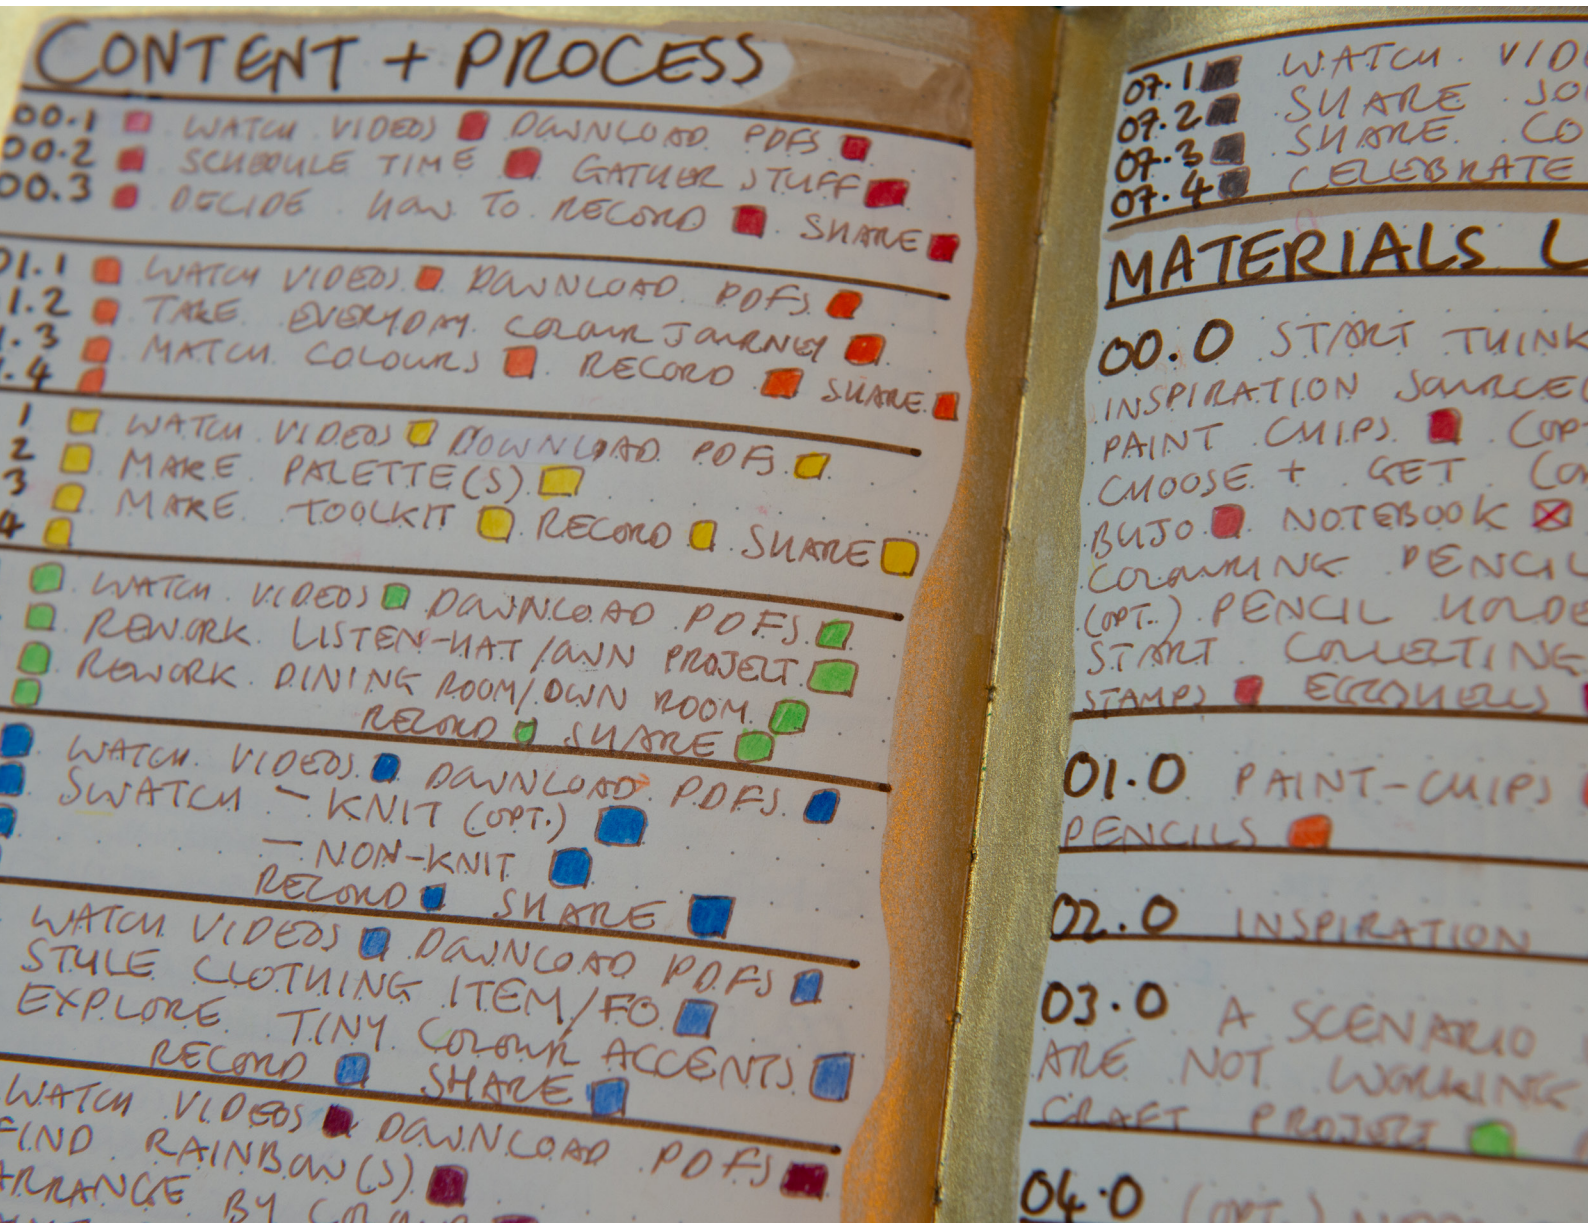 CONTENT + PROCESS
00.1 WATCH VIDEOS DOWNLOAD PDFS
00.2 SCHEDULE TIME GATHER STUFF
00.3 DECIDE HOW TO RECORD SHARE
01.1 WATCH VIDEOS DOWNLOAD PDFS
1.2 TAKE EVERYDAY COLOUR JOURNEY
.3 MATCH COLOURS RECORD SHARE
.4
1 WATCH VIDEOS DOWNLOAD PDFS
2 MAKE PALETTE(S)
3 MAKE TOOLKIT RECORD SHARE
4
WATCH VIDEOS DOWNLOAD PDFS
REWORK LISTEN-HAT/OWN PROJECT
REWORK DINING ROOM/OWN ROOM
RECORD SHARE
WATCH VIDEOS DOWNLOAD PDFS
SWATCH - KNIT (OPT.)
- NON-KNIT
RECORD SHARE
WATCH VIDEOS DOWNLOAD PDFS
STYLE CLOTHING ITEM/FO
EXPLORE TINY COLOUR ACCENTS
RECORD SHARE
WATCH VIDEOS DOWNLOAD PDFS
FIND RAINBOW(S)
ARRANGE BY COLOUR
07.1 WATCH VIDE
07.2 SHARE JO
07.3 SHARE CO
07.4 CELEBRATE
MATERIALS L
00.0 START THINK
INSPIRATION SOURCE
PAINT CHIPS (OPT
CHOOSE + GET CO
BUJO NOTEBOOK
COLOURING PENCIL
(OPT.) PENCIL HOLDE
START COLLECTING
STAMPS EGGSHELLS
01.0 PAINT-CHIPS
PENCILS
02.0 INSPIRATION
03.0 A SCENARIO
ARE NOT WORKING
CRAFT PROJECT
04.0 (OPT.)